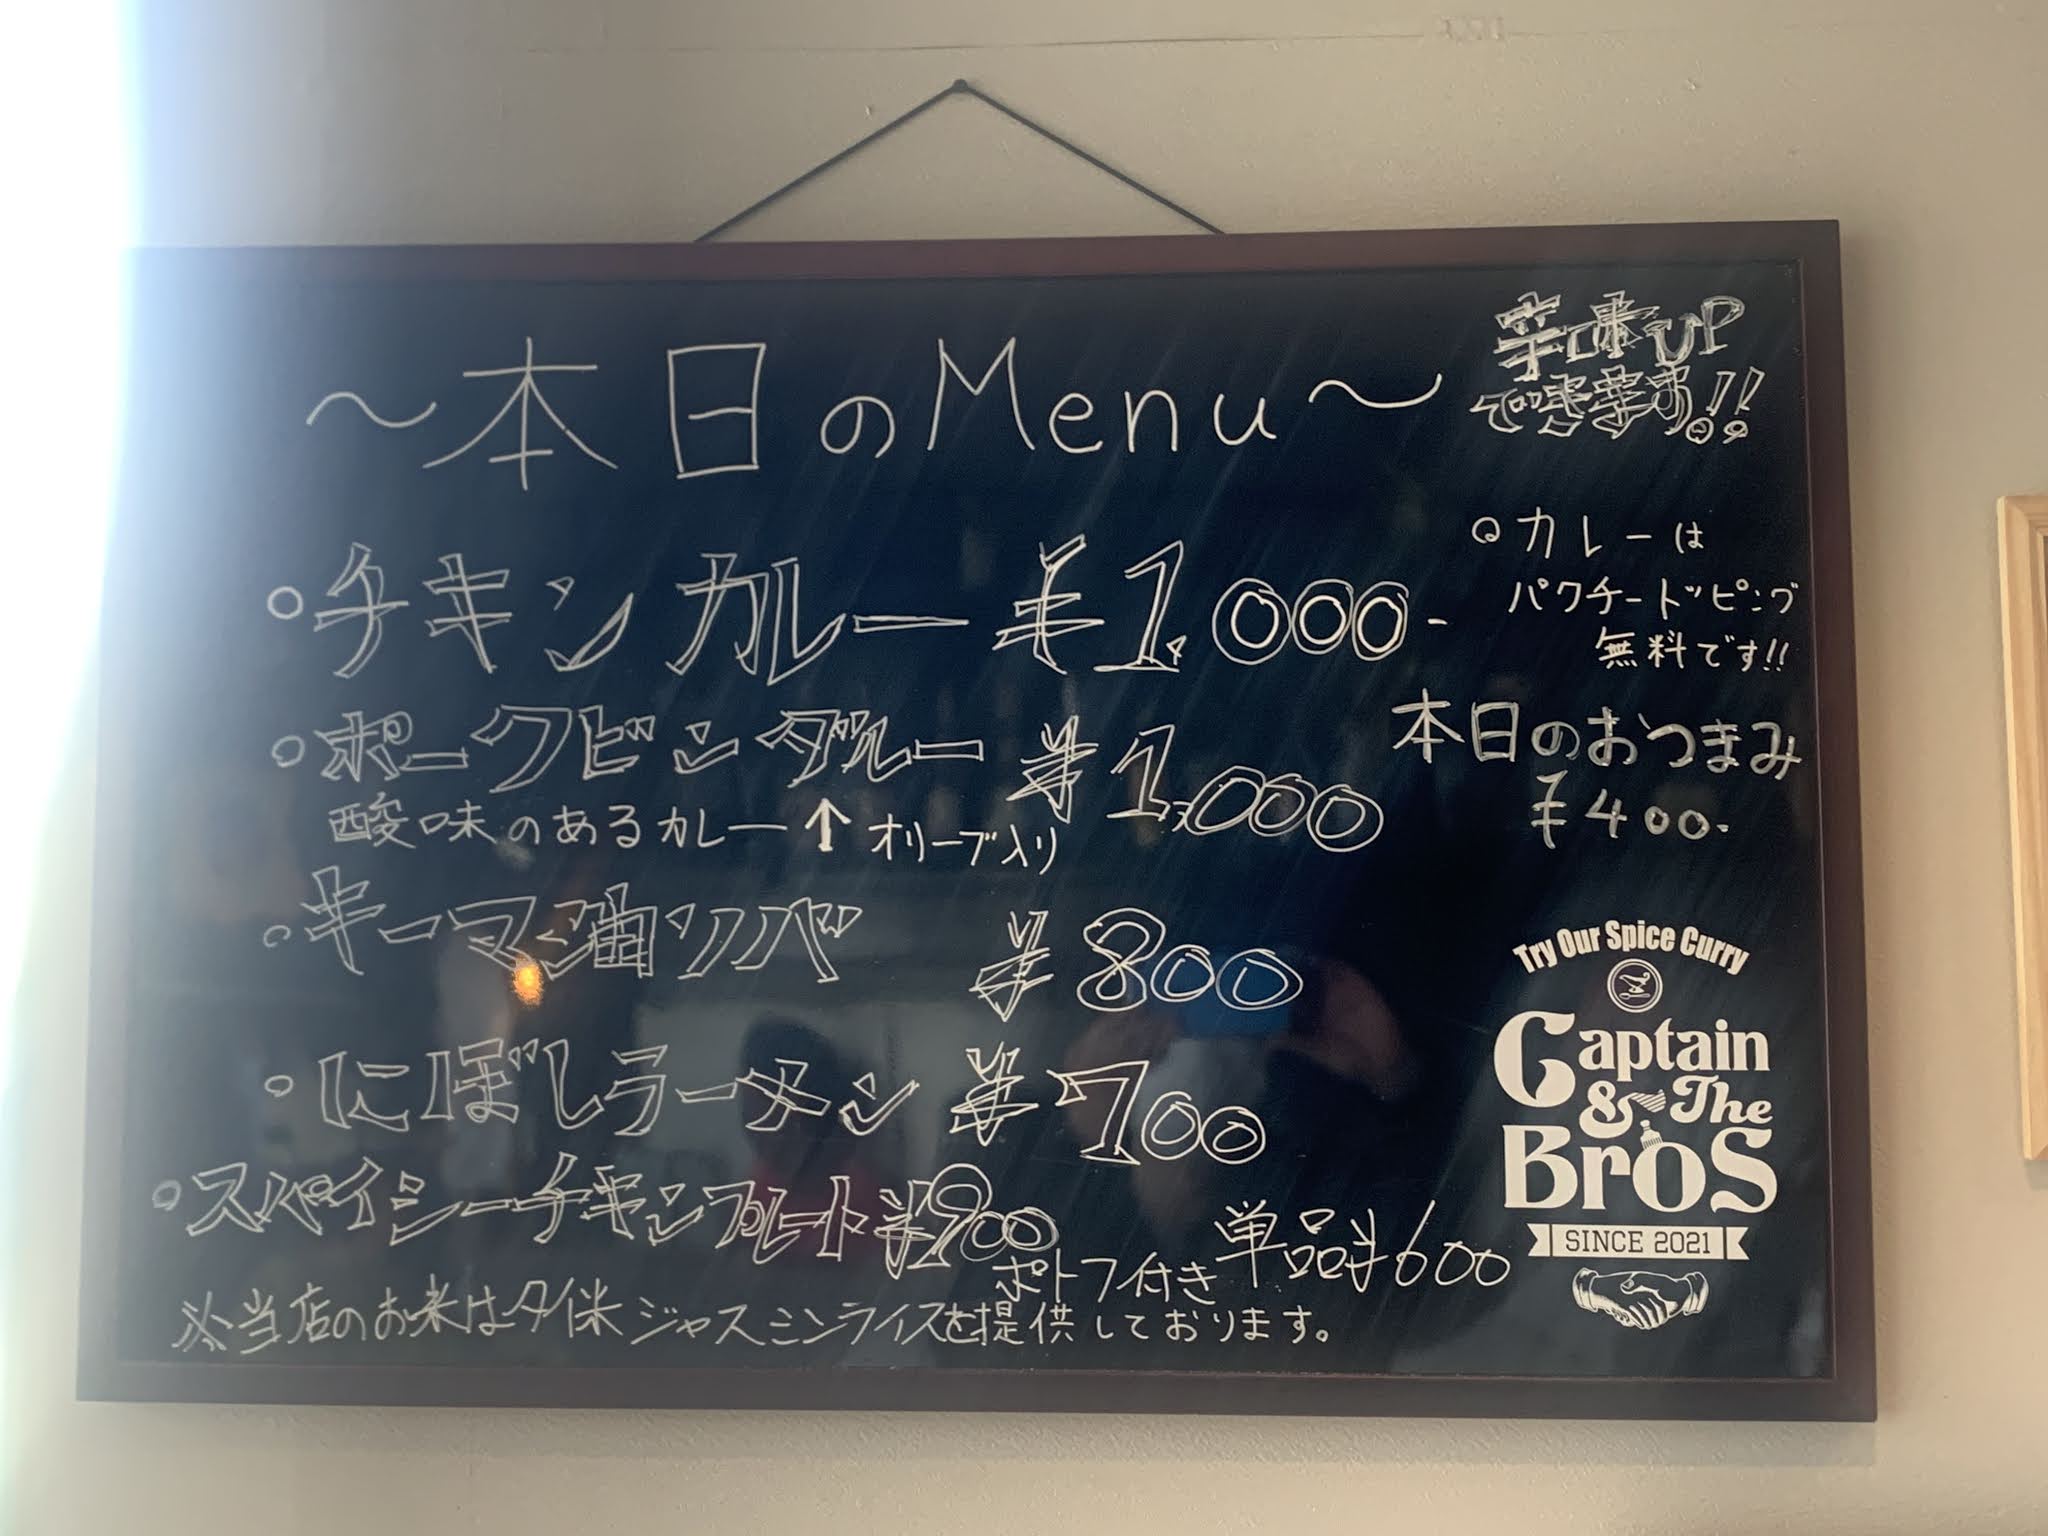 〜本日のMenu〜
辛味UP
できます!!
○チキンカレー ¥1,000-
○カレーは
パクチートッピング
無料です!!
○ポークビンダルー ¥1,000
酸味のあるカレー↑ オリーブ入り
本日のおつまみ
¥400-
○キーマ油ソバ ¥800
○にぼしラーメン ¥700
○スパイシーチキンプレート ¥900
ポトフ付き
単品¥600
※当店のお米はタイ米ジャスミンライスを提供しております。
Try Our Spice Curry
Captain
& The
Bros
SINCE 2021